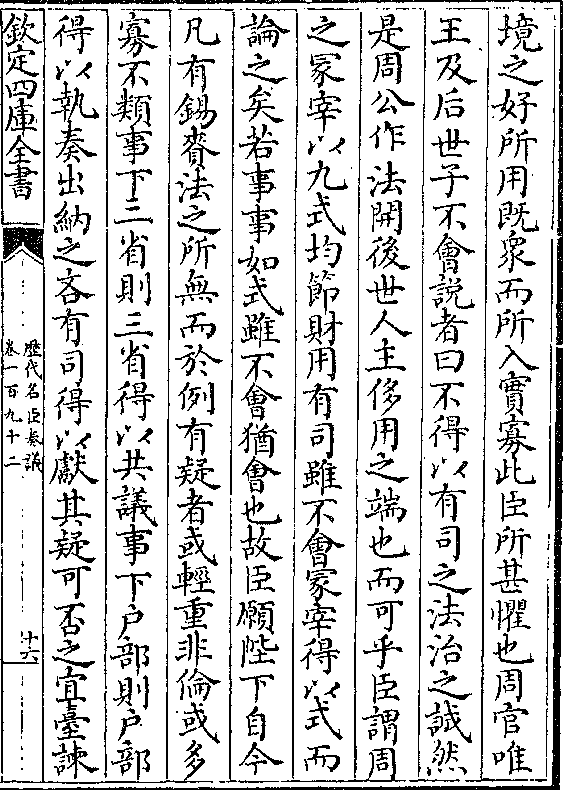 境之好所用既衆而所入實寡此臣所甚懼也周官唯
王及后世子不會説者曰不得以有司之法治之誠然
是周公作法開後世人主侈用之端也而可乎臣謂周
之冢宰以九式均節財用有司雖不會冢宰得以式而
論之矣若事事如式雖不會猶會也故臣願陛下自今
凡有錫賚法之所無而於例有疑者或輕重非倫或多
寡不類事下三省則三省得以共議事下户部則户部
得以執奏出納之吝有司得以獻其疑可否之宜臺諫
欽定四庫全書
歷代名臣奏議
卷一百九十二
十六